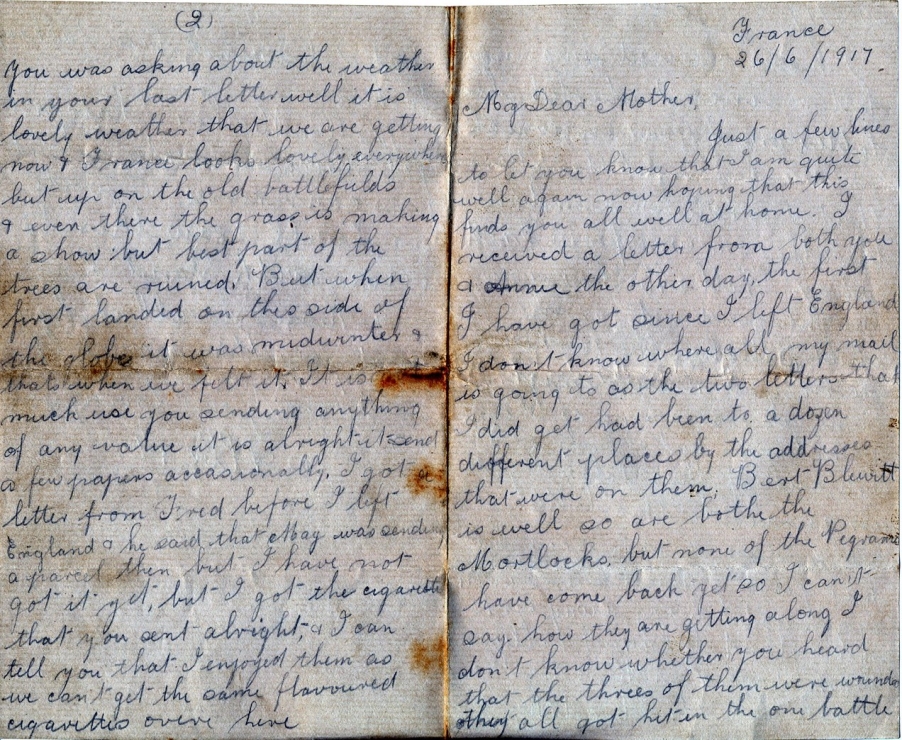 France
26/6/1917.
My Dear Mother,
Just a few lines
to let you know that I am quite
well again now hoping that this
finds you all well at home. I
received a letter from both you
& Annie the other day, the first
I have got since I left England
I don't know where all my mail
is going to as the two letters that
I did get had been to a dozen
different places by the addresses
that were on them. Bert Blewitt
is well so are bothe the
Mortlocks, but none of the Pegrams
have come back yet so I can't
say how they are getting along I
don't know whether you heard
that the threes of them were wounded
they all got hit in the one battle
(2)
You was asking about the weather
in your last letter well it is
lovely weather that we are getting
now & France looks lovely everywhere
but up on the old battlefields
& even there the grass is making
a show but best part of the
trees are ruined. But when
first landed on this side of
the globe it was midwinter &
thats when we felt it. It is
much use you sending anything
of any value it is alright it send
a few papers occasionally. I got a
letter from Fred before I left
England & he said that May was sending
a parcel then but I have not
got it yet, but I got the cigarettes
that you sent alright, & I can
tell you that I enjoyed them as
we can't get the same flavoured
cigarettes overe here